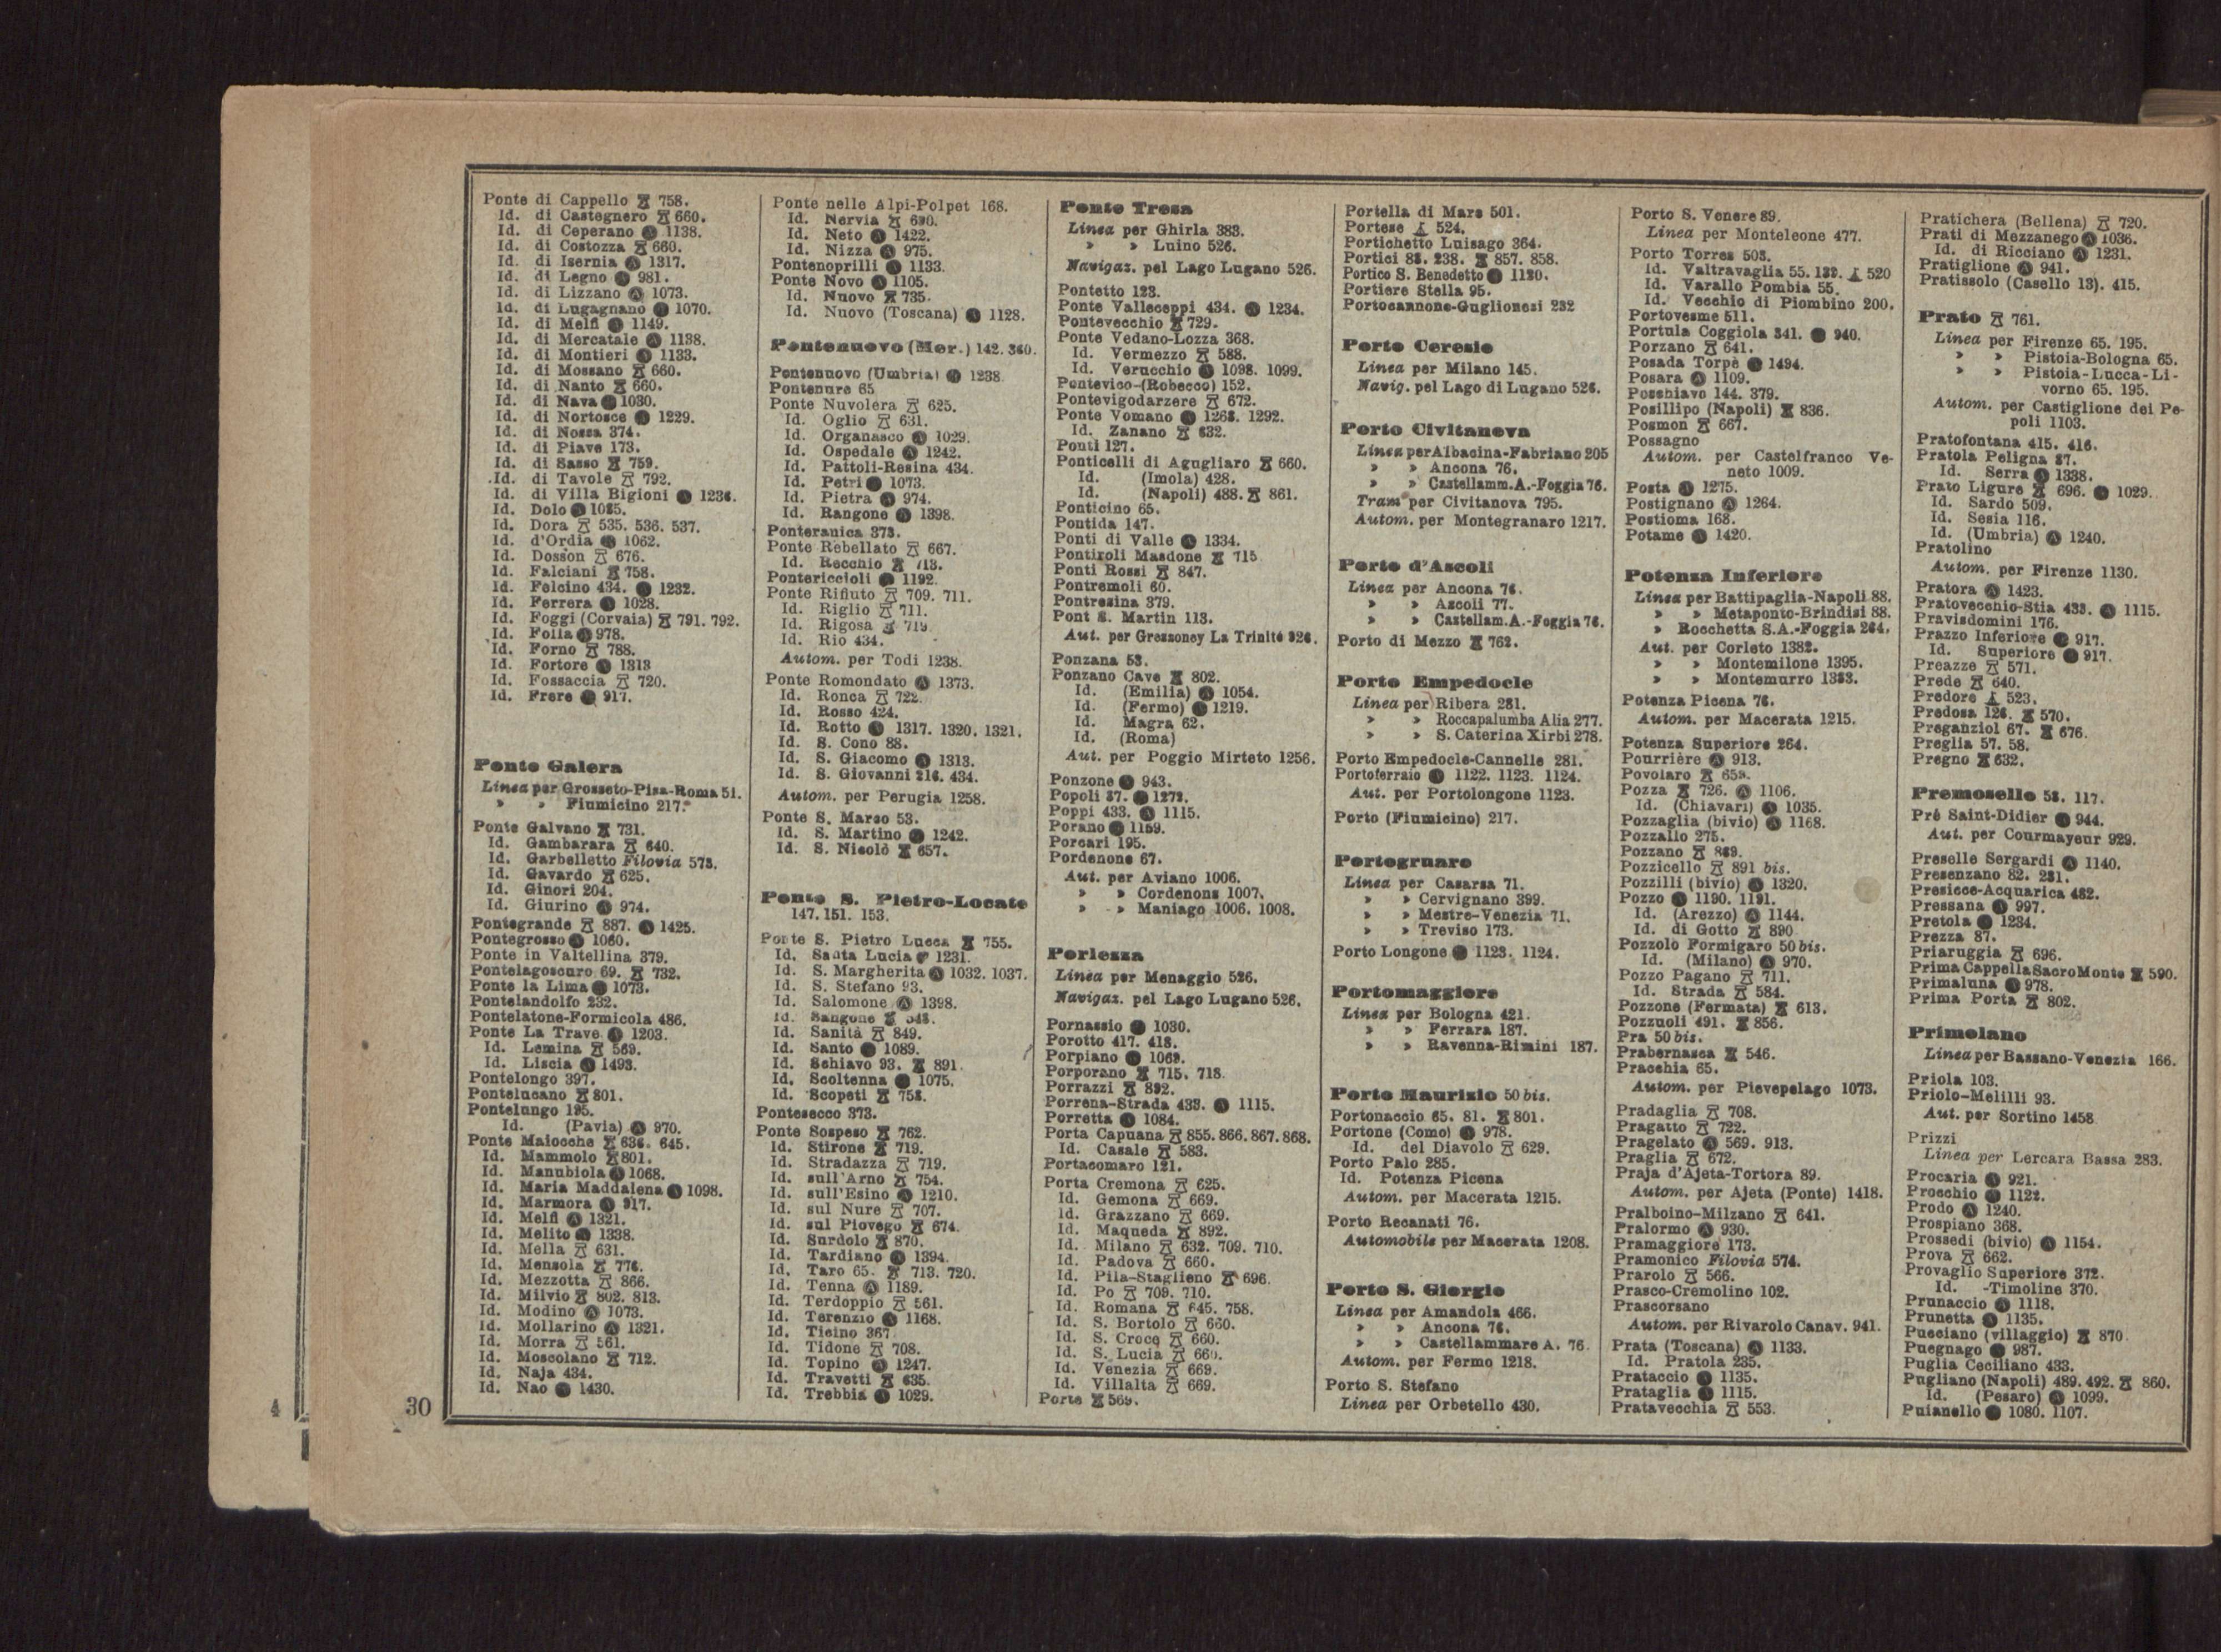 Ponte di Cappello 758.
Id. di Castegnero 660.
Id. di Ceperano Ⓐ 1138.
Id. di Costozza 660.
Id. di Isernia Ⓐ 1317.
Id. di Legno Ⓐ 981.
Id. di Lizzano Ⓐ 1073.
Id. di Lugagnano Ⓐ 1070.
Id. di Melfi Ⓐ 1149.
Id. di Mercatale Ⓐ 1138.
Id. di Montieri Ⓐ 1133.
Id. di Mossano 660.
Id. di Nanto 660.
Id. di Nava Ⓐ 1030.
Id. di Nortosce Ⓐ 1229.
Id. di Nossa 374.
Id. di Piave 173.
Id. di Sasso 759.
Id. di Tavole 792.
Id. di Villa Bigioni Ⓐ 1236.
Id. Dolo Ⓐ
Id. Dora 535. 536. 537.
Id. d'Ordia Ⓐ 1062.
Id. Dosson 676.
Id. Falciani 758.
Id. Felcino 434. Ⓐ 1232.
Id. Ferrera Ⓐ 1028.
Id. Foggi (Corvaia) 791. 792.
Id. Folla Ⓐ 978.
Id. Forno 788.
Id. Fortore Ⓐ 1313
Id. Fossaccia 720.
Id. Frere Ⓐ 917.
Ponte Galera
Linea per Grosseto-Pisa-Roma 51.
» » Fiumicino 217.
Ponte Galvano 731.
Id. Gambarara 640.
Id. Garbelletto Filovia 573.
Id. Gavardo 625.
Id. Ginori 204.
Id. Giurino Ⓐ 974.
Pontegrande 887. Ⓐ 1425.
Pontegrosso Ⓐ 1060.
Ponte in Valtellina 379.
Pontelagoscuro 69. 732.
Ponte la Lima Ⓐ 1073.
Pontelandolfo 232.
Pontelatone-Formicola 486.
Ponte La Trave Ⓐ 1203.
Id. Lemina 569.
Id. Liscia Ⓐ 1493.
Pontelongo 397.
Pontelucano 801.
Pontelungo 195.
Id. (Pavia) Ⓐ 970.
Ponte Maiocche 636. 645.
Id. Mammolo 801.
Id. Manubiola Ⓐ 1068.
Id. Maria Maddalena Ⓐ 1098.
Id. Marmora Ⓐ 917.
Id. Melfi Ⓐ 1321.
Id. Melito Ⓐ 1338.
Id. Mella 631.
Id. Mensola 776.
Id. Mezzotta 866.
Id. Milvio 802. 813.
Id. Modino Ⓐ 1073.
Id. Mollarino Ⓐ 1321.
Id. Morra 561.
Id. Moscolano 712.
Id. Naja 434.
Id. Nao Ⓐ 1430.
Ponte nelle Alpi-Polpet 168.
Id. Nervia 690.
Id. Neto Ⓐ 1422.
Id. Nizza Ⓐ 975.
Pontenoprilli Ⓐ 1133.
Ponte Novo Ⓐ 1105.
Id. Nuovo 735.
Id. Nuovo (Toscana) Ⓐ 1128.
Pontenuovo (Mer.) 142. 360.
Pontenuovo (Umbria) Ⓐ 1238
Pontenure 65
Ponte Nuvolera 625.
Id. Oglio 631.
Id. Organasco Ⓐ 1029.
Id. Ospedale Ⓐ 1242.
Id. Pattoli-Resina 434.
Id. Petri Ⓐ 1073.
Id. Pietra Ⓐ 974.
Id. Rangone Ⓐ 1398.
Ponteranica 373.
Ponte Rebellato 667.
Id. Recchio 713.
Pontericcioli Ⓐ 1192.
Ponte Rifiuto 709. 711.
Id. Riglio 711.
Id. Rigosa
Id. Rio 434.
Autom. per Todi 1238.
Ponte Romondato Ⓐ 1373.
Id. Ronca 722.
Id. Rosso 424.
Id. Rotto Ⓐ 1317. 1320. 1321.
Id. S. Cono 88.
Id. S. Giacomo Ⓐ 1313.
Id. S. Giovanni 216. 434.
Autom. per Perugia 1258.
Ponte S. Marco 53.
Id. S. Martino Ⓐ 1242.
Id. S. Nicolò 657.
Ponte S. Pietro-Locate
147. 151. 153.
Ponte S. Pietro Lucca 755.
Id. Santa Lucia 1231.
Id. S. Margherita Ⓐ 1032. 1037.
Id. S. Stefano 93.
Id. Salomone Ⓐ 1398.
Id. Sangone 548.
Id. Sanità 849.
Id. Santo Ⓐ 1089.
Id. Schiavo 93. 891.
Id. Scoltenna Ⓐ 1075.
Id. Scopeti 758.
Pontesecco 373.
Ponte Sospeso 762.
Id. Stirone 719.
Id. Stradazza 719.
Id. sull'Arno 754.
Id. sull'Esino Ⓐ 1210.
Id. sul Nure 707.
Id. sul Piovego 674.
Id. Surdolo 870.
Id. Tardiano Ⓐ 1394.
Id. Taro 65. 713. 720.
Id. Tenna Ⓐ 1189.
Id. Terdoppio 561.
Id. Terenzio Ⓐ 1168.
Id. Ticino 367
Id. Tidone 708.
Id. Topino Ⓐ 1247.
Id. Travetti 635.
Id. Trebbia Ⓐ 1029.
Ponte Tresa
Linea per Ghirla 383.
» » Luino 526.
Navigaz. pel Lago Lugano 526.
Pontetto 123.
Ponte Valleceppi 434. Ⓐ 1234.
Pontevecchio 729.
Ponte Vedano-Lozza 368.
Id. Vermezzo 588.
Id. Verucchio Ⓐ 1098. 1099.
Pontevico-(Robecco) 152.
Pontevigodarzere 672.
Ponte Vomano Ⓐ 1268. 1292.
Id. Zanano 632.
Ponti 127.
Ponticelli di Agugliaro 660.
Id. (Imola) 428.
Id. (Napoli) 488. 861.
Ponticino 65.
Pontida 147.
Ponti di Valle Ⓐ 1334.
Pontiroli Masdone 715
Ponti Rossi 847.
Pontremoli 60.
Pontresina 379.
Pont S. Martin 113.
Aut. per Gressoney La Trinité 926.
Ponzana 53.
Ponzano Cave 802.
Id. (Emilia) Ⓐ 1054.
Id. (Fermo) Ⓐ 1219.
Id. Magra 62.
Id. (Roma)
Aut. per Poggio Mirteto 1256.
Ponzone Ⓐ 943.
Popoli 87. Ⓐ 1272.
Poppi 433. Ⓐ 1115.
Porano Ⓐ 1159.
Porcari 195.
Pordenone 67.
Aut. per Aviano 1006.
» » Cordenons 1007.
» » Maniago 1006. 1008.
Porlezza
Linea per Menaggio 526.
Navigaz. pel Lago Lugano 526.
Pornassio Ⓐ 1030.
Porotto 417. 418.
Porpiano Ⓐ 1069.
Porporano 715. 718.
Porrazzi 892.
Porrena-Strada 433. Ⓐ 1115.
Porretta Ⓐ 1084.
Porta Capuana 855. 866. 867. 868.
Id. Casale 583.
Portacomaro 121.
Porta Cremona 625.
Id. Gemona 669.
Id. Grazzano 669.
Id. Maqueda 892.
Id. Milano 632. 709. 710.
Id. Padova 660.
Id. Pila-Staglieno 696.
Id. Po 709. 710.
Id. Romana 645. 758.
Id. S. Bortolo 660.
Id. S. Croce 660.
Id. S. Lucia 660.
Id. Venezia 669.
Id. Villalta 669.
Porte 569.
Portella di Mare 501.
Portese 524.
Portichetto Luisago 364.
Portici 88. 238. 857. 858.
Portico S. Benedetto Ⓐ 1120.
Portiere Stella 95.
Portocannone-Guglionesi 232
Porto Ceresio
Linea per Milano 145.
Navig. pel Lago di Lugano 526.
Porto Civitanova
Linea per Albacina-Fabriano 205
» » Ancona 76.
» » Castellamm.A.-Foggia 76.
Tram per Civitanova 795.
Autom. per Montegranaro 1217.
Porto d'Ascoli
Linea per Ancona 76.
» » Ascoli 77.
» » Castellam.A.-Foggia 76.
Porto di Mezzo 762.
Porto Empedocle
Linea per Ribera 281.
» » Roccapalumba Alia 277.
» » S. Caterina Xirbi 278.
Porto Empedocle-Cannelle 281.
Portoferraio Ⓐ 1122. 1123. 1124.
Aut. per Portolongone 1123.
Porto (Fiumicino) 217.
Portogruaro
Linea per Casarsa 71.
» » Cervignano 399.
» » Mestre-Venezia 71.
» » Treviso 173.
Porto Longone Ⓐ 1123. 1124.
Portomaggiore
Linea per Bologna 421.
» » Ferrara 187.
» » Ravenna-Rimini 187.
Porto Maurizio 50 bis.
Portonaccio 65. 81. 801.
Portone (Como) Ⓐ 978.
Id. del Diavolo 629.
Porto Palo 285.
Id. Potenza Picena
Autom. per Macerata 1215.
Porto Recanati 76.
Automobile per Macerata 1208.
Porto S. Giorgio
Linea per Amandola 466.
» » Ancona 76.
» » Castellammare A. 76
Autom. per Fermo 1218.
Porto S. Stefano
Linea per Orbetello 430.
Porto S. Venere 89.
Linea per Monteleone 477.
Porto Torres 503.
Id. Valtravaglia 55. 132. 520
Id. Varallo Pombia 55.
Id. Vecchio di Piombino 200.
Portovesme 511.
Portula Coggiola 341. Ⓐ 940.
Porzano 641.
Posada Torpè Ⓐ 1494.
Posara Ⓐ 1109.
Poschiavo 144. 379.
Posillipo (Napoli) 836.
Posmon 667.
Possagno
Autom. per Castelfranco Ve-
neto 1009.
Posta Ⓐ 1275.
Postignano Ⓐ 1264.
Postioma 168.
Potame Ⓐ 1420.
Potenza Inferiore
Linea per Battipaglia-Napoli 88.
» » Metaponto-Brindisi 88.
» Rocchetta S.A.-Foggia 264.
Aut. per Corleto 1382.
» » Montemilone 1395.
» » Montemurro 1383.
Potenza Picena 76.
Autom. per Macerata 1215.
Potenza Superiore 264.
Pourrière Ⓐ 913.
Povolaro 659.
Pozza 726. Ⓐ 1106.
Id. (Chiavari) Ⓐ 1035.
Pozzaglia (bivio) Ⓐ 1168.
Pozzallo 275.
Pozzano 869.
Pozzicello 891 bis.
Pozzilli (bivio) Ⓐ 1320.
Pozzo Ⓐ 1190. 1191.
Id. (Arezzo) Ⓐ 1144.
Id. di Gotto 890
Pozzolo Formigaro 50 bis.
Id. (Milano) Ⓐ 970.
Pozzo Pagano 711.
Id. Strada 584.
Pozzone (Fermata) 613.
Pozzuoli 491. 856.
Pra 50 bis.
Prabernasca 546.
Pracchia 65.
Autom. per Pievepelago 1073.
Pradaglia 708.
Pragatto 722.
Pragelato Ⓐ 569. 913.
Praglia 672.
Praja d'Ajeta-Tortora 89.
Autom. per Ajeta (Ponte) 1418.
Pralboino-Milzano 641.
Pralormo Ⓐ 930.
Pramaggiore 173.
Pramonico Filovia 574.
Prarolo 566.
Prasco-Cremolino 102.
Prascorsano
Autom. per Rivarolo Canav. 941.
Prata (Toscana) Ⓐ 1133.
Id. Pratola 235.
Prataccio Ⓐ 1135.
Prataglia Ⓐ 1115.
Pratavecchia 553.
Pratichera (Bellena) 720.
Prati di Mezzanego Ⓐ 1036.
Id. di Ricciano Ⓐ 1231.
Pratiglione Ⓐ 941.
Pratissolo (Casello 13). 415.
Prato 761.
Linea per Firenze 65. 195.
» » Pistoia-Bologna 65.
» » Pistoia-Lucca-Li-
vorno 65. 195.
Autom. per Castiglione dei Pe-
poli 1103.
Pratofontana 415. 416.
Pratola Peligna 87.
Id. Serra Ⓐ 1338.
Prato Ligure 696. Ⓐ 1029.
Id. Sardo 509.
Id. Sesia 116.
Id. (Umbria) Ⓐ 1240.
Pratolino
Autom. per Firenze 1130.
Pratora Ⓐ 1423.
Pratovecchio-Stia 433. Ⓐ 1115.
Pravisdomini 176.
Prazzo Inferiore Ⓐ 917.
Id. Superiore Ⓐ 917.
Preazze 571.
Prede 640.
Predore 523.
Predosa 126. 570.
Preganziol 67. 676.
Preglia 57. 58.
Pregno 632.
Premosello 58. 117.
Prè Saint-Didier Ⓐ 944.
Aut. per Courmayeur 929.
Preselle Sergardi Ⓐ 1140.
Presenzano 82. 231.
Presicce-Acquarica 482.
Pressana Ⓐ 997.
Pretola Ⓐ 1234.
Prezza 87.
Priaruggia 696.
Prima Cappella Sacro Monte 590.
Primaluna Ⓐ 978.
Prima Porta 802.
Primolano
Linea per Bassano-Venezia 166.
Priola 103.
Priolo-Melilli 93.
Aut. per Sortino 1458
Prizzi
Linea per Lercara Bassa 283.
Procaria Ⓐ 921.
Procchio Ⓐ 1122.
Prodo Ⓐ 1240.
Prospiano 368.
Prossedi (bivio) Ⓐ 1154.
Prova 662.
Provaglio Superiore 372.
Id. -Timoline 370.
Prunaccio Ⓐ 1118.
Prunetta Ⓐ 1135.
Pucciano (villaggio) 870
Puegnago Ⓐ 987.
Puglia Ceciliano 433.
Pugliano (Napoli) 489. 492. 860.
Id. (Pesaro) Ⓐ 1099.
Puianello Ⓐ 1080. 1107.
4
30